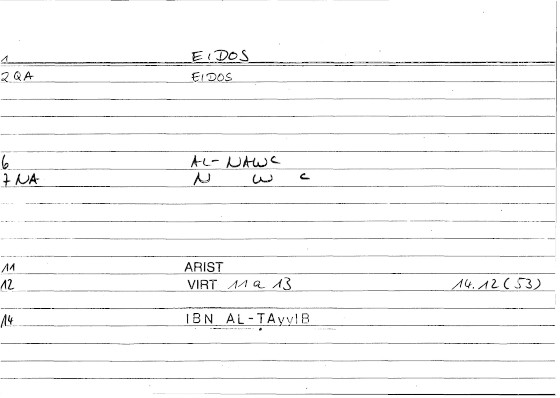 1 EIDOS
2 QA EIDOS
6 AL-NAWC
7 NA N W C
11 ARIST
12 VIRT 11 a 13 14.12 (53)
14 IBN AL-ṬAyyIB